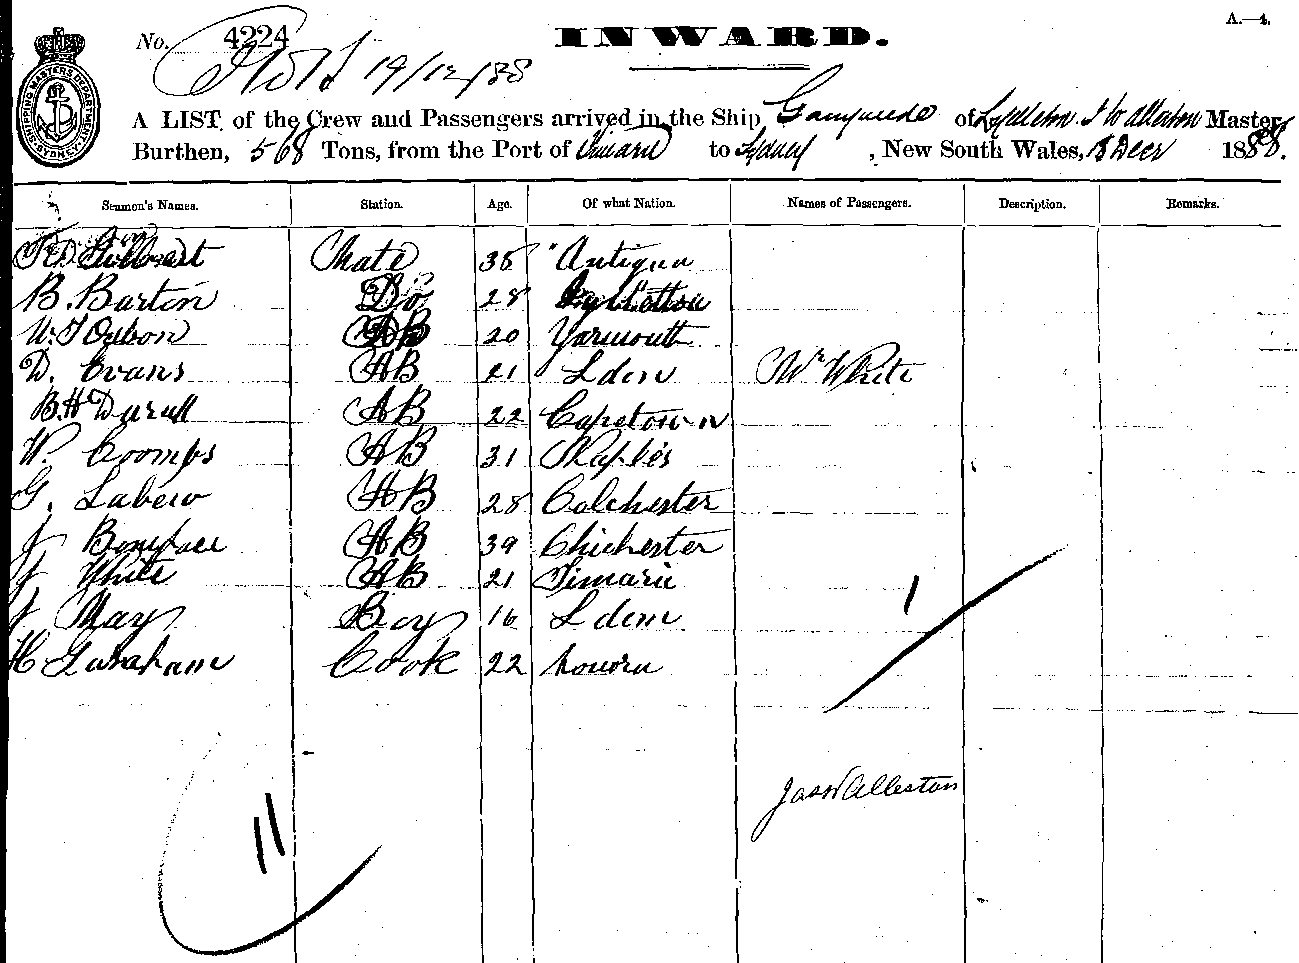 A.—4.
No. 4224
INWARD.
19/12/88
A LIST of the Crew and Passengers arrived in the Ship Ganymede of Lyttelton J W Alleston Master,
Burthen, 568 Tons, from the Port of Timaru to Sydney, New South Wales, 18 Decr 1888.
SHIPPING MASTER'S DEPARTMENT SYDNEY
Seamen's Names. Station. Age. Of what Nation. Names of Passengers. Description. Remarks.
Mate 35 Antigua
B. Barton Do 28
AB 20 Yarmouth
D. Evans AB 21 Ldon Mr White
B.H Durell AB 22 Capetown
W. Coombs AB 31 Naples
G. Labew AB 28 Colchester
J Boniface AB 39 Chichester
J White AB 21 Timaru
J May Boy 16 Ldon
H Garaham Cook 22
1
Jas W Alleston
11